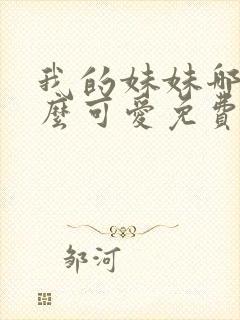 我的妹妹那
麼可愛免費
邹河